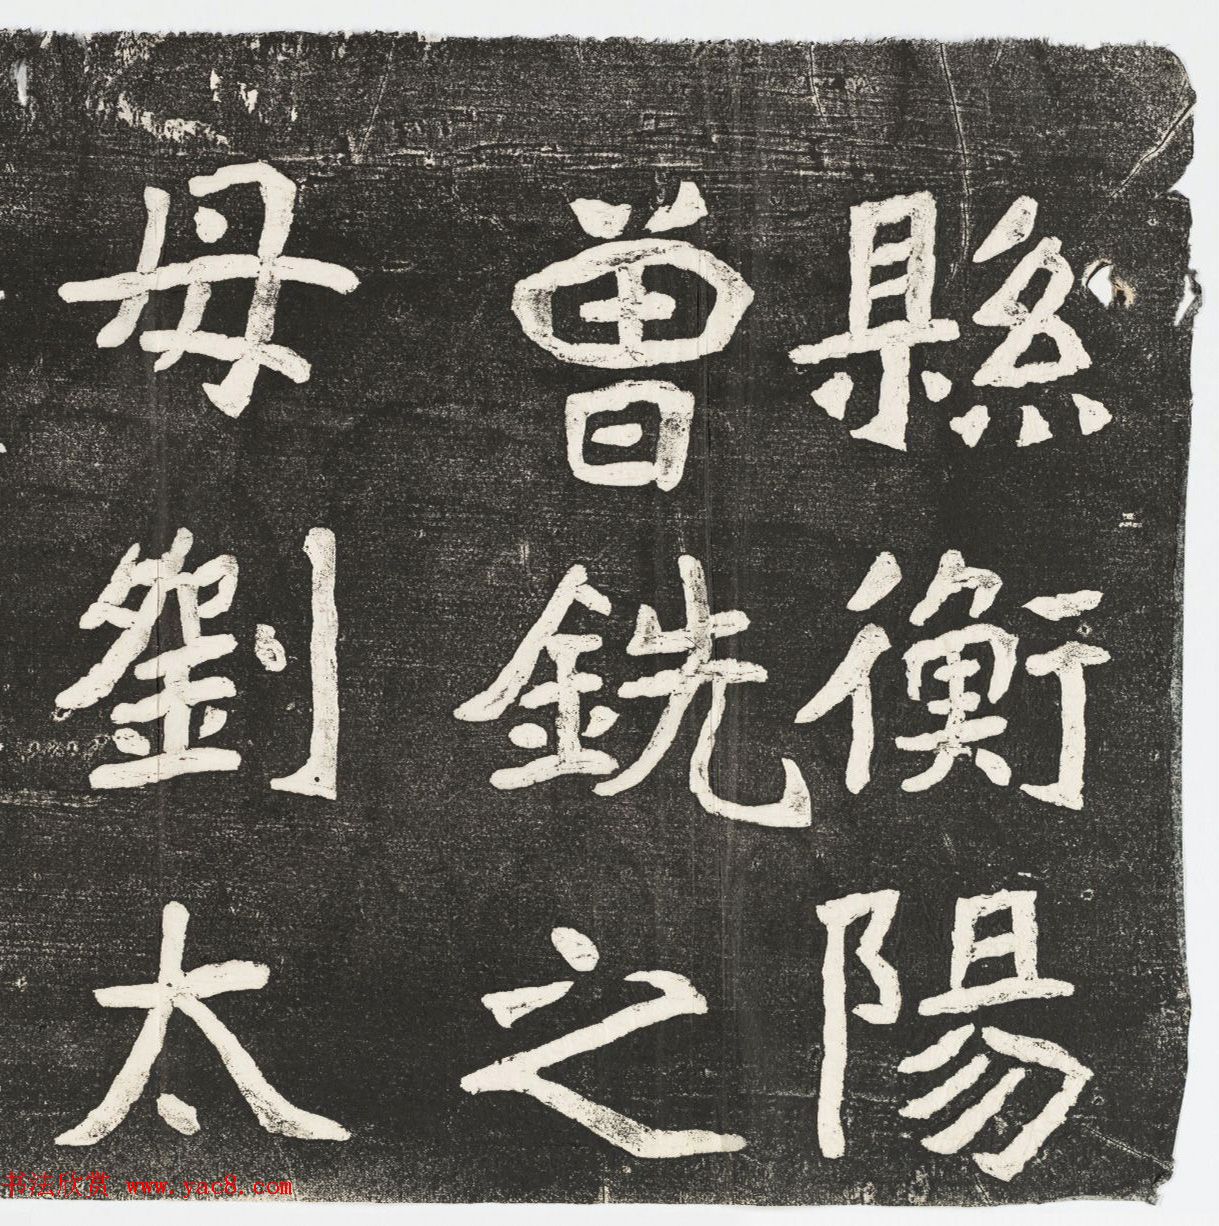 縣衡陽
曾銑之
母劉太
书法欣赏 www.yac8.com